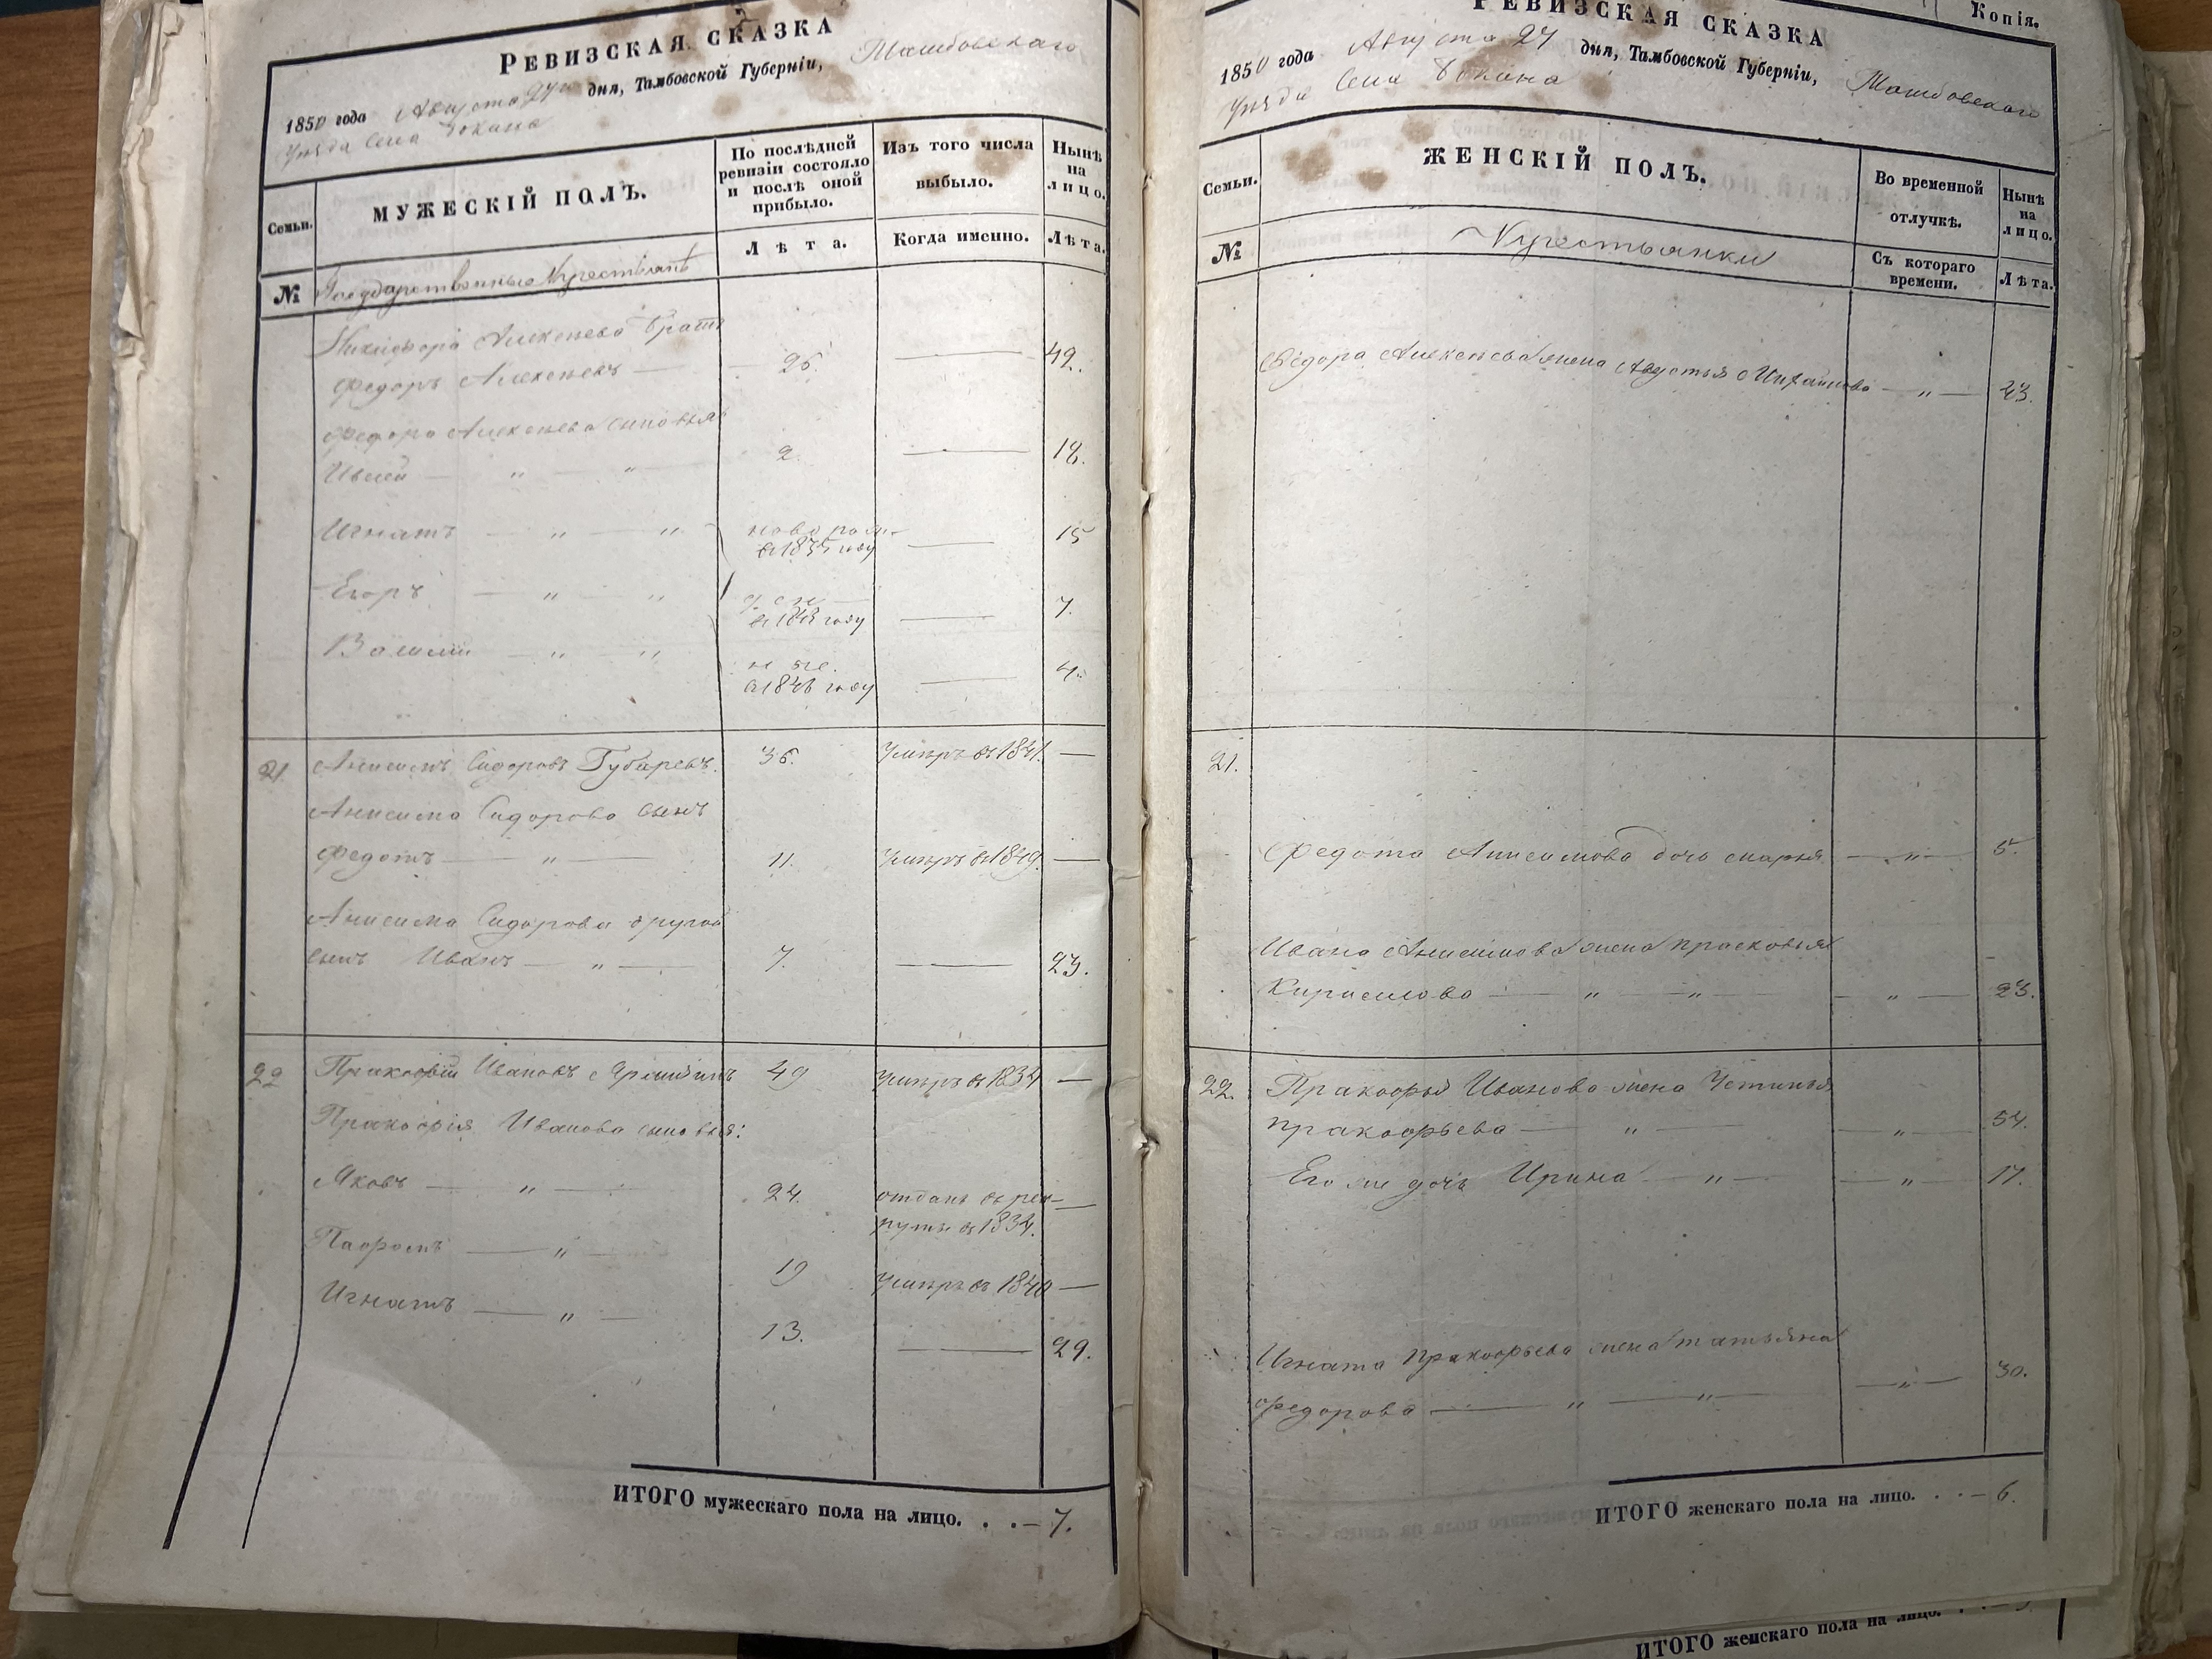 РЕВИЗСКАЯ СКАЗКА
1850 года Августа 27 дня, Тамбовской Губерніи, Тамбовскаго
Уѣзда Села
Семьи.
МУЖЕСКІЙ ПОЛЪ.
По послѣдней ревизіи состояло и послѣ оной прибыло.
Изъ того числа выбыло.
Нынѣ на лицо.
№
Государственные Крестьяне
Лѣта.
Когда именно.
Лѣта.
Никифора Алексѣева братъ
Федоръ Алексѣевъ — 25. — 42.
Федора Алексѣева сыновья
— " — " 2. — 18.
Игнатъ — " — " новорож. въ 1835 году — 15
Егоръ — " — " въ 1843 году — 7.
Василій — " — " въ 1846 году — 4.
21. Анисимъ Сидоровъ Губаревъ. 36. Умеръ въ 1841. —
Анисима Сидорова сынъ
Федотъ — " — 11. Умеръ въ 1849. —
Анисима Сидорова другой
сынъ Иванъ — " — 7. — 23.
22 Пракофій Ивановъ 49 Умеръ въ 1834 —
Пракофія Иванова сыновья:
Яковъ — " — 24. отданъ въ рек-
руты въ 1834. —
— " — 19 Умеръ въ 1840 —
Игнатъ — " — 13. — 29.
ИТОГО мужескаго пола на лицо. . . — 7.
Копія.
РЕВИЗСКАЯ СКАЗКА
1850 года Августа 27 дня, Тамбовской Губерніи, Тамбовскаго
Уѣзда Села
Семьи.
ЖЕНСКІЙ ПОЛЪ.
Во временной отлучкѣ.
Нынѣ на лицо.
№
Крестьянки
Съ котораго времени.
Лѣта.
Федора Алексѣева жена Авдотья — " — 43.
21.
Федота Анисимова дочь Марья — " — 5.
Ивана Анисимова жена Прасковья
Кирисилова — " — " — — " — 23.
22. Пракофья Иванова жена Устинья
Пракофьева — " — — " — 54.
Его же дочь Ирина — " — — " — 17.
Игната Пракофьева жена Татьяна
Федорова — " — " — " — 30.
ИТОГО женскаго пола на лицо. . . — 6.
ИТОГО женскаго пола на лицо.